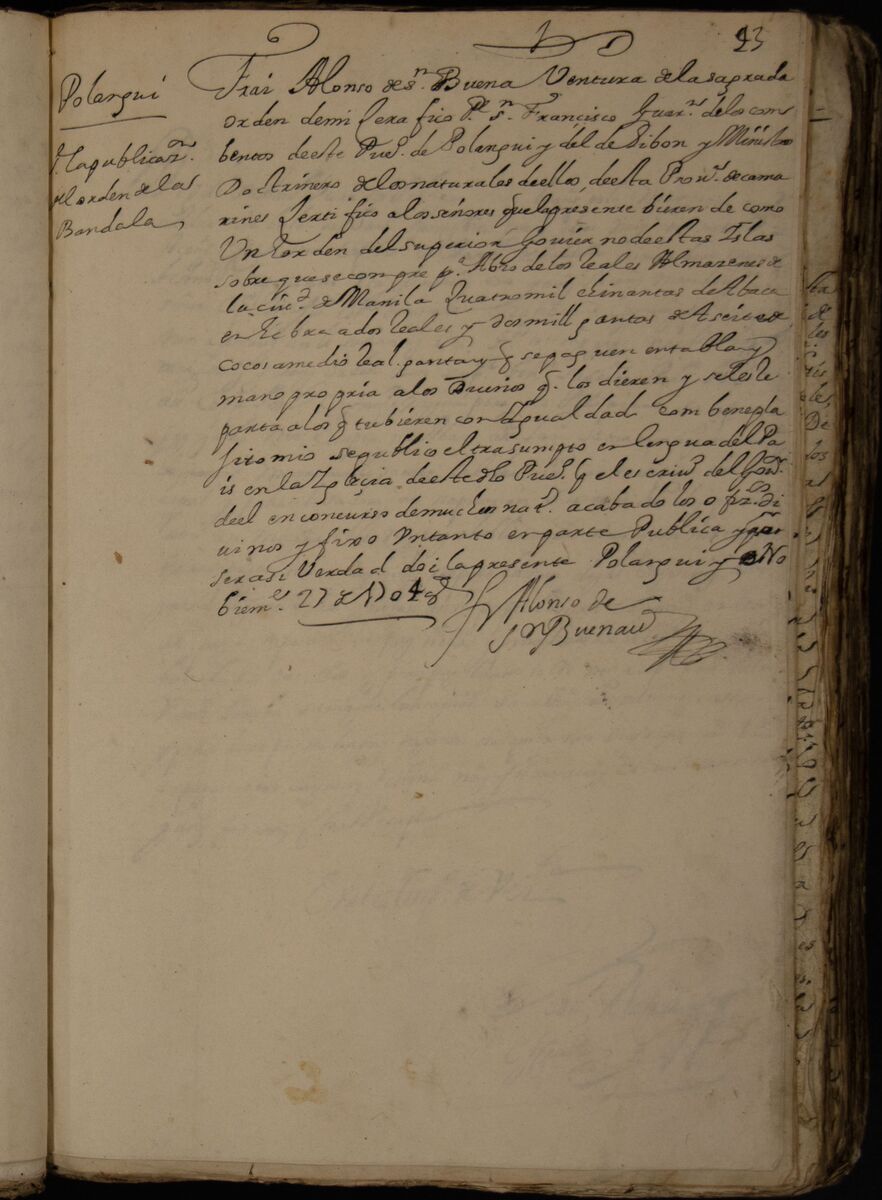 93
Polangui
Ɂ. la publicazon.
del orden de las
Bandala
Frai Alonso de sn. Buena Ventura de la sagrada
orden de mi Serafico Pe. sn. Francisco Guarn. de los com
bentos de este Pueo. de Polangui y del de Libon y Ministro
Doctrinero de los naturales de ellos, de esta Prova. de cama
rines Sertifico a los señores que la presente bieren de como
Un tor orden del superior Govierno de estas Islas
sobre que se compre pa. Abio de los reales Almazenes de
la ciud. de Manila Quatromil chinantas de Abaca
en hebra a dos reales y dos mill gantas de Aseite de
cocos a medio real ganta y q se paguen en tabla y
mano propria a los Dueños q. los dieren y se les re
parta a los q tubieren con Igualdad com benepla
sito mio se publico el trasumpto en lengua del Pa
is en la Iglecia de este dho Pueo. q el escrivo. del Gover.
de el en concurso de muchos nats. acabado los ofizos. di
uinos y fixo Un tanto en parte Publica y por
ser asi Verdad doi la presente Polangui y No
biembe. 27 de 1704 as
fr Alonso de
Sn Buenauª